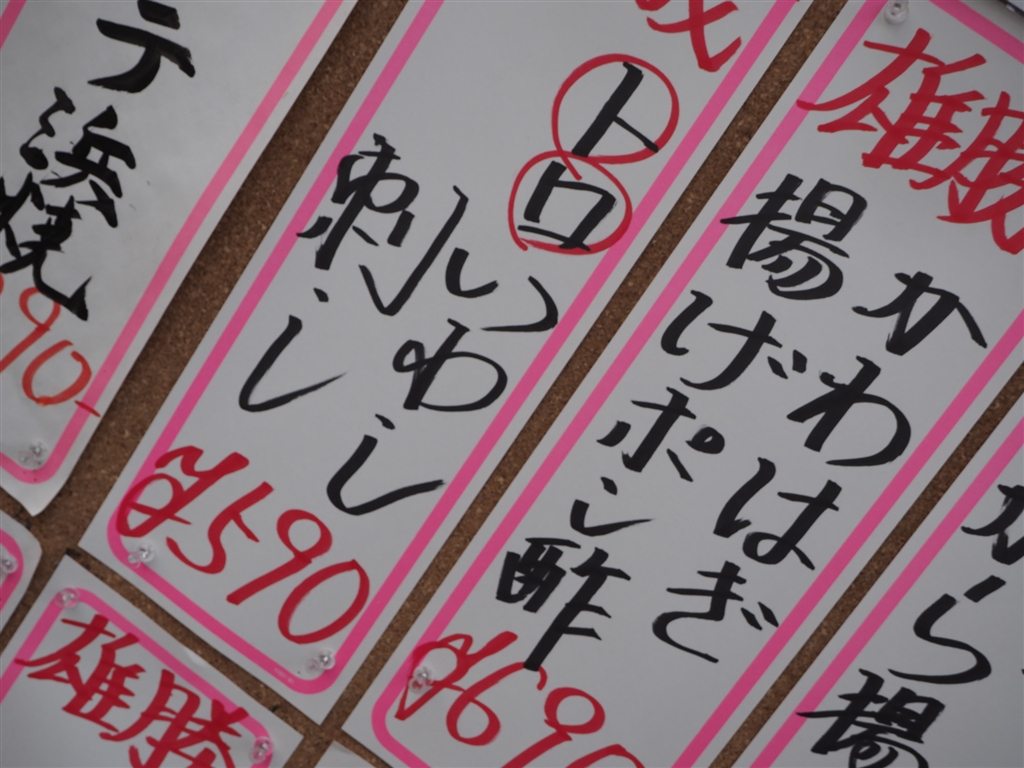 雄勝
かわはぎ
揚げポン酢
¥690
トロ
いわし
刺し
¥590
テ浜焼
90-
から揚
雄勝